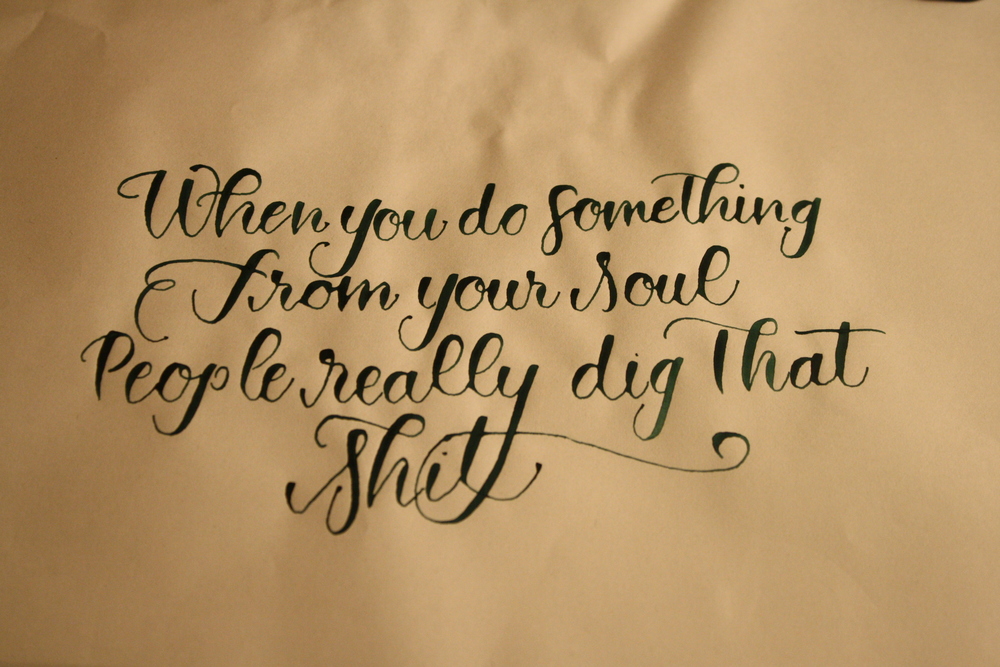 When you do something
from your soul
People really dig That
Shit